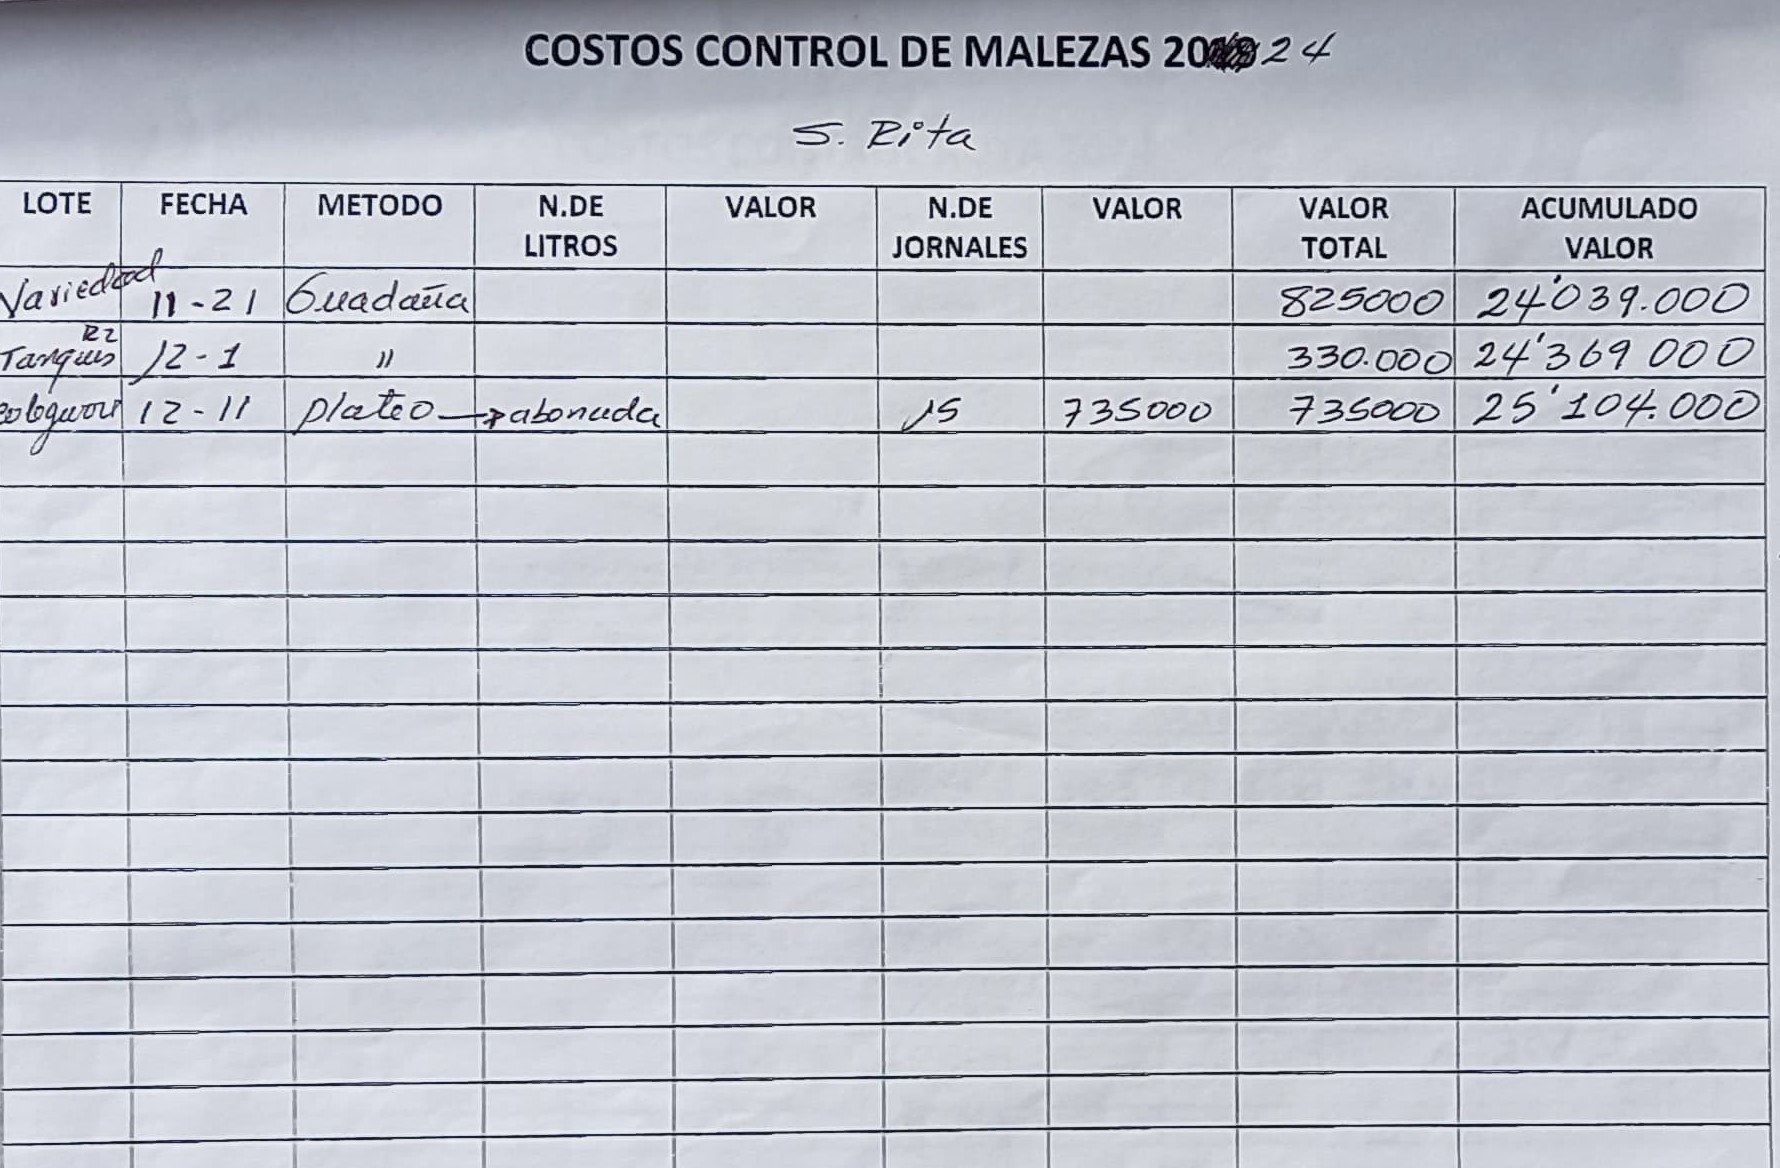 COSTOS CONTROL DE MALEZAS 20 24
S. Rita
LOTE FECHA METODO N.DE LITROS VALOR N.DE JORNALES VALOR VALOR TOTAL ACUMULADO VALOR
Variedad 11-21 Guadaña 825000 24'039.000
Tanques R2 12-1 " 330.000 24'369 000
12-11 plateo → abonada 15 735000 735000 25'104.000